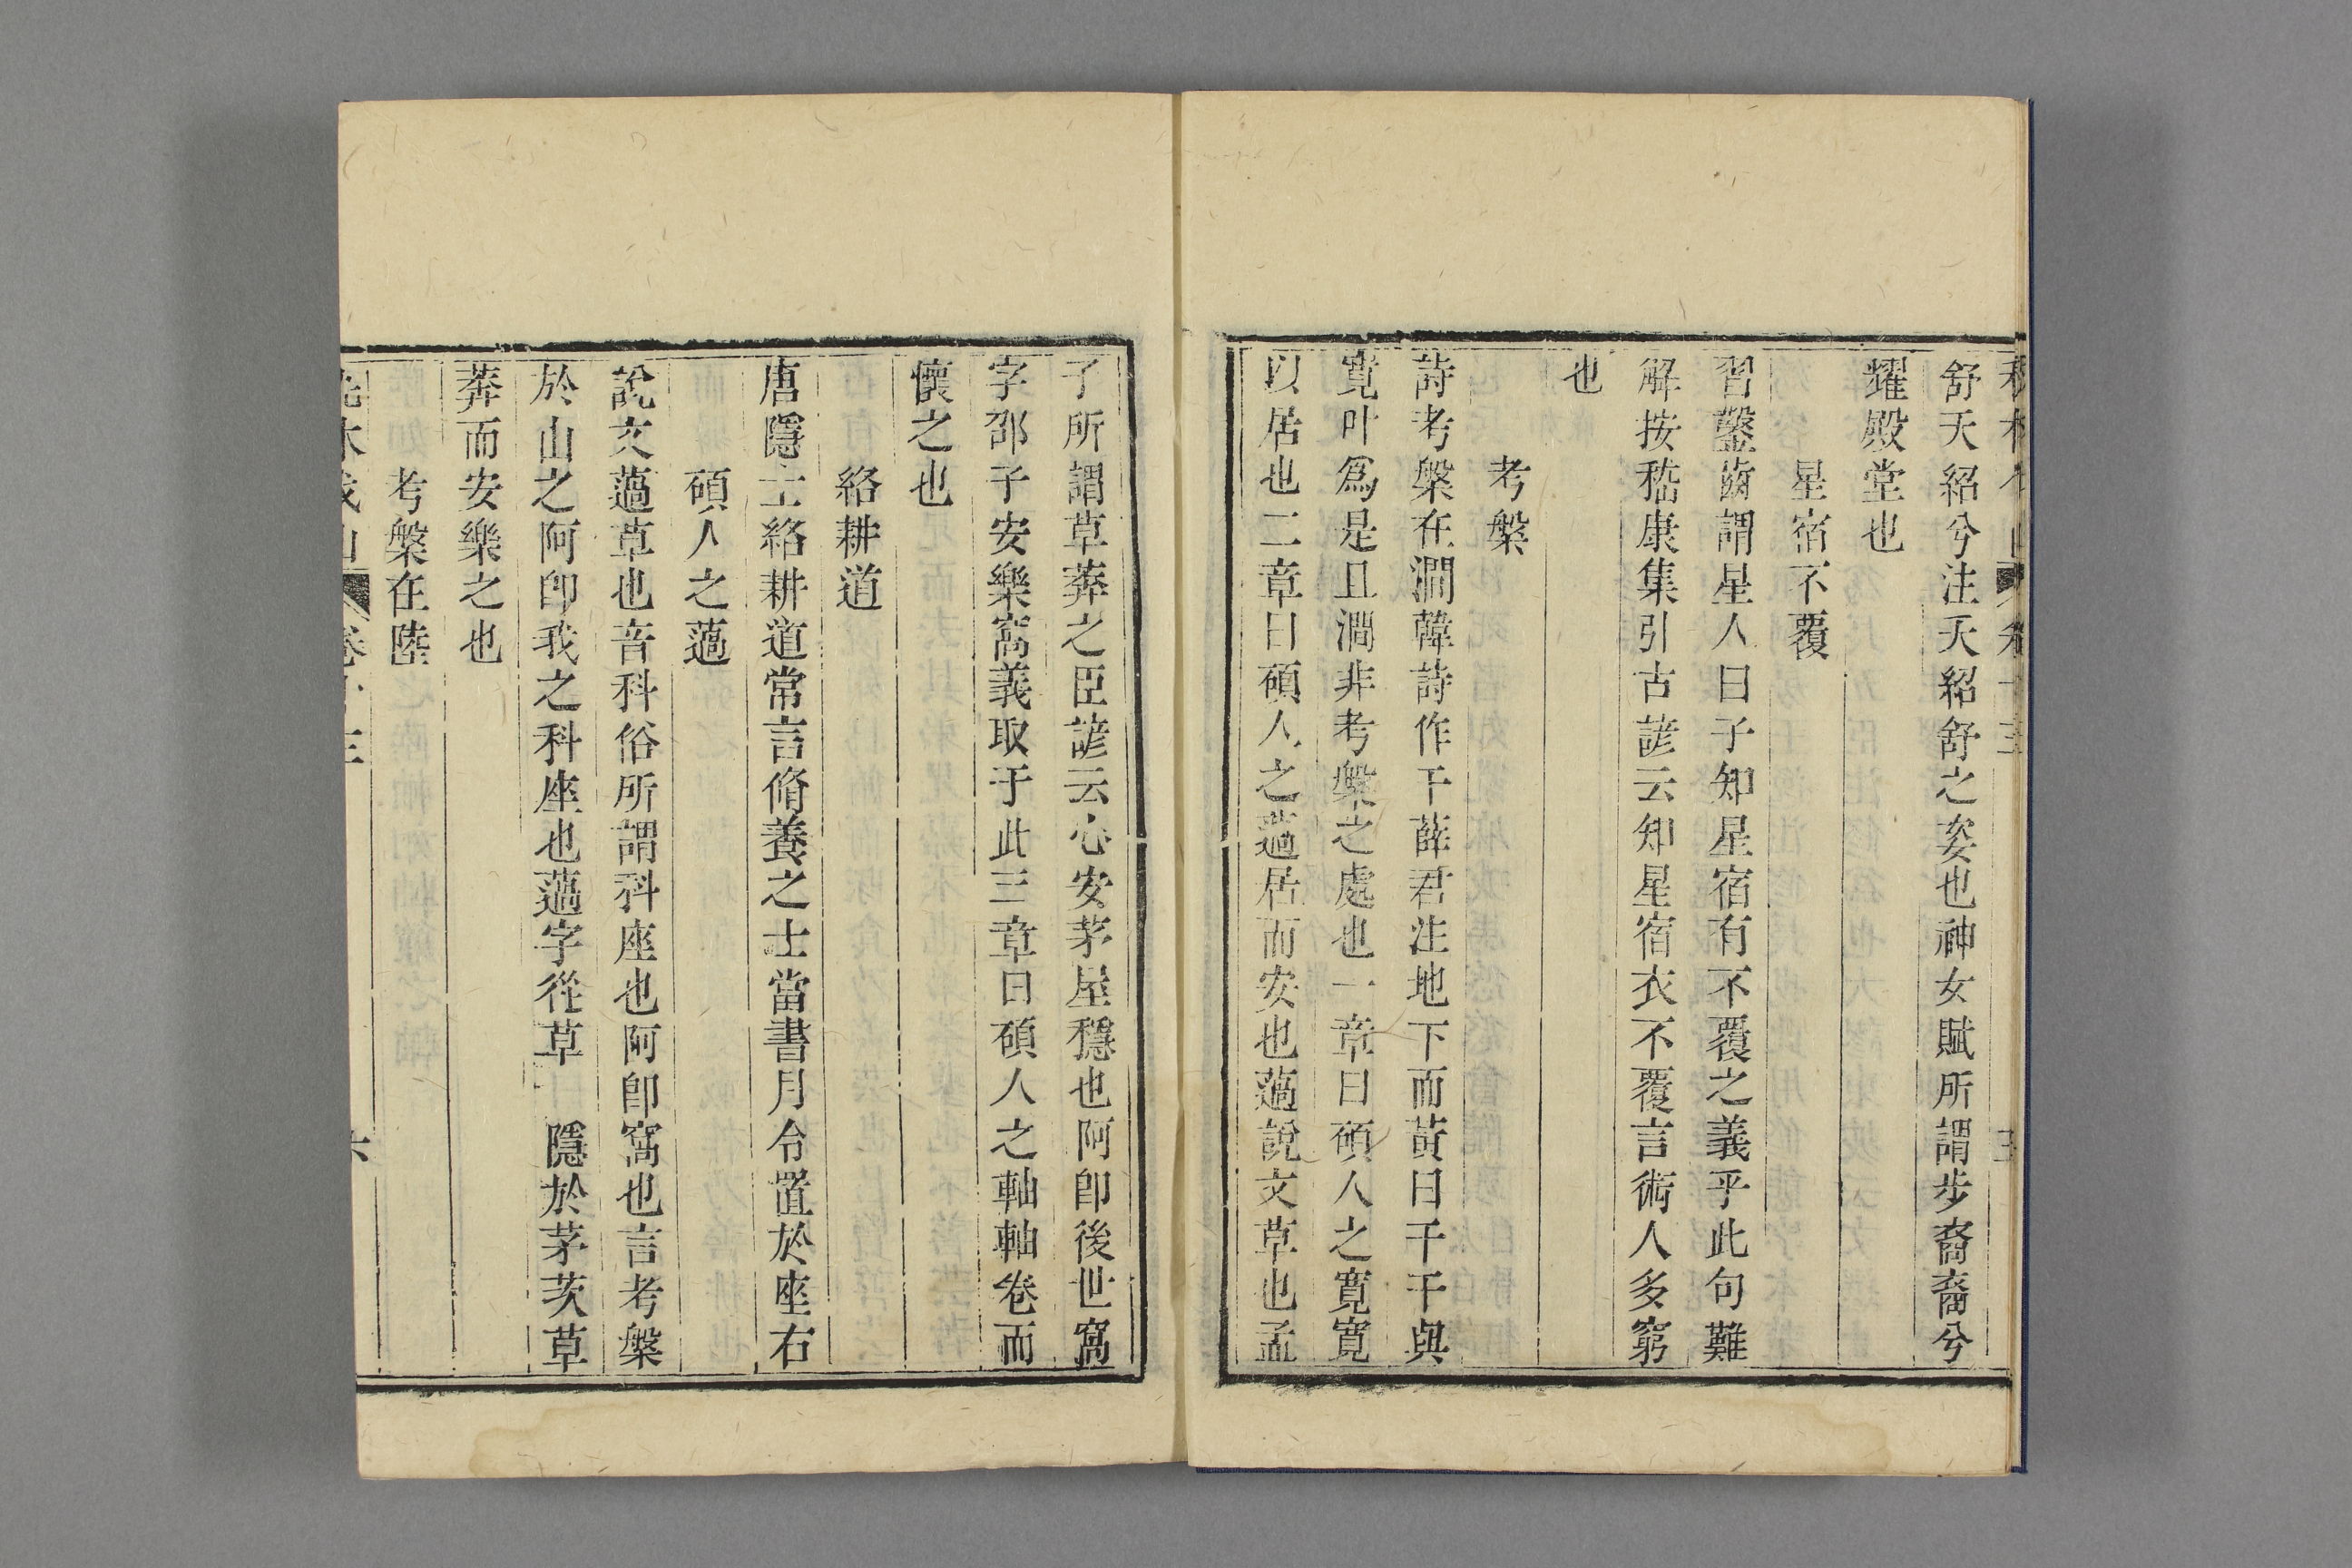 舒夭紹兮注夭紹舒之姿也神女賦所謂步裔裔兮
耀殿堂也
星宿不覆
習鑿齒謂星人曰子知星宿有不覆之義乎此句難
解按嵇康集引古諺云知星宿衣不覆言術人多窮
也
考槃
詩考槃在澗韓詩作干薛君注地下而黃曰干干與
寬叶爲是且澗非考槃之處也一章曰碩人之寬寬
以居也二章曰碩人之薖居而安也薖說文草也孟
子所謂草莽之臣諺云心安茅屋穩也阿卽後世窩
字邵子安樂窩義取于此三章曰碩人之軸軸卷而
懷之也
絡耕道
唐隱士絡耕道常言脩養之士當書月令置於座右
碩人之薖
說文薖草也音科俗所謂科座也阿卽窩也言考槃
於山之阿卽我之科座也薖字從草 隱於茅茨草
莽而安樂之也
考槃在陸